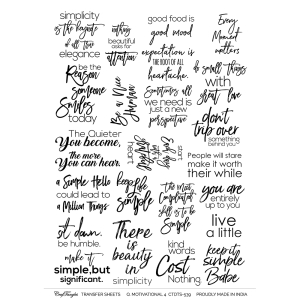 simplicity
is the keynote
of all true
elegance
nothing
beautiful
asks for
attention
good food is
good mood
Every
Moment
matters
expectation is
THE ROOT OF ALL
heartache.
be the
Reason
Someone
Smiles
today
Be a Nice
Human
Sometimes all
we need is
just a new
perspective
do small things
with
great love
don't
trip over
something
behind you
The Quieter
You become,
the more
You can hear.
People will stare
make it worth
their while
a Simple Hello
could lead to
a Million Things
keep
life
Simple
The most
Complicated
skill is
To be
Simple
you are
entirely
up to you
sit down.
be humble.
There
is
beauty
in
simplicity
live
a little
make it
simple,but
significant.
kind
words
Cost
Nothing
keep it
simple
Babe
CrafTangles TRANSFER SHEETS MOTIVATIONAL 4 CTDTS-539 PROUDLY MADE IN INDIA